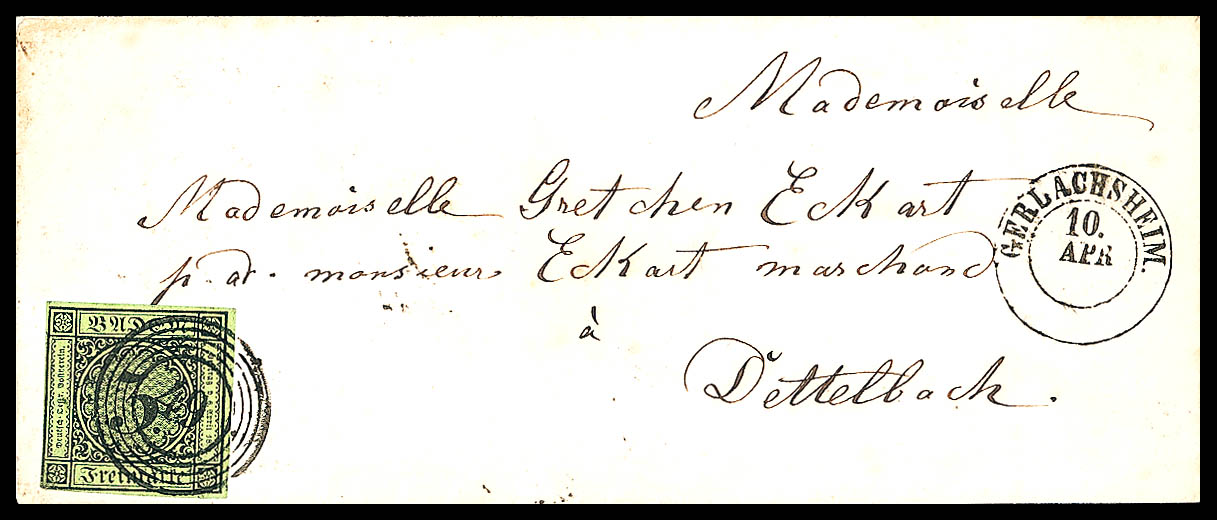 Mademoiselle
Mademoiselle Gretchen Eckart
p. ad. monsieur Eckart marchand
à
Dettelbach.
GERLACHSHEIM.
10.
APR
BADEN
3
Freimarke